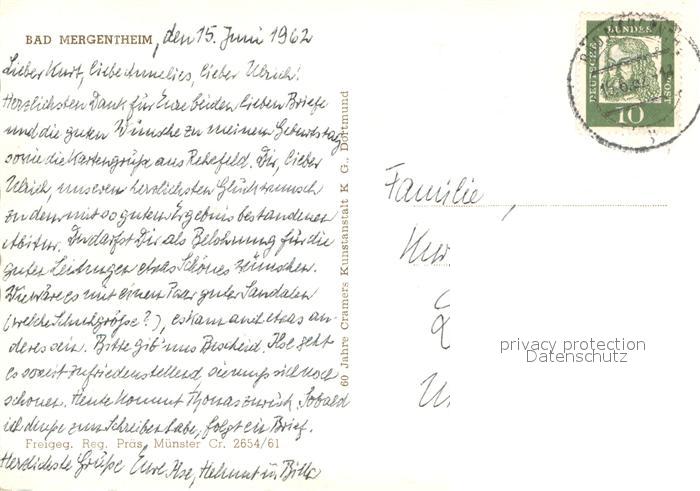 BAD MERGENTHEIM, den 15. Juni 1962
Lieber Kurt, liebe Annelies, lieber Ulrich!
Herzlichsten Dank für Eure beiden lieben Briefe
und die guten Wünsche zu meinem Geburtstag
sowie die Kartengrüße aus Rehefeld. Dir, lieber
Ulrich, unseren herzlichsten Glückwunsch
zu dem mit so guten Ergebnis bestandenen
Abitur. Du darfst Dir als Belohnung für die
guten Leistungen etwas Schönes wünschen.
Wie wäre es mit einem Paar guter Sandalen
(welche Schuhgröße?), es kann auch etwas an-
deres sein. Bitte gib' uns Bescheid. Ilse geht
es soweit zufriedenstellend, sie muß sich noch
schonen. Heute kommt Thomas zurück. Sobald
ich Muße zum Schreiben habe, folgt ein Brief.
Freigeg. Reg. Präs. Münster Cr. 2654/61
Herzlichste Grüße Eure Ilse, Helmut u.
60 Jahre Cramers Kunstanstalt K G., Dortmund
DEUTSCHE BUNDESPOST
10
Familie
Kur
privacy protection
Datenschutz
U